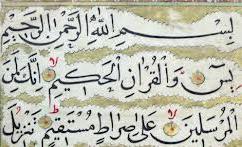 بِسْمِ اللّٰهِ الرَّحْمٰنِ الرَّحِيمِ
يٰسٓ وَالْقُرْاٰنِ الْحَكِيمِ اِنَّكَ لَمِنَ
الْمُرْسَلِينَ عَلٰى صِرَاطٍ مُسْتَقِيمٍ تَنْزِيلَ